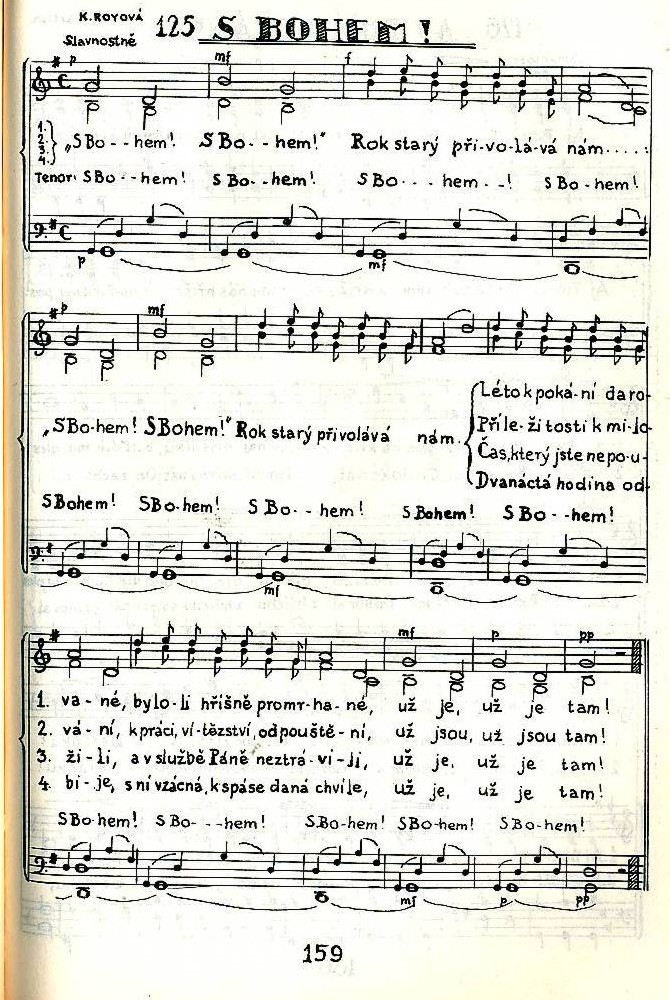 K. ROYOVÁ
125 S BOHEM!
Slavnostně
p mf f
1. 2. 3. 4. } „S Bo - - hem! S Bo - - hem!" Rok starý při-vo-lá-vá nám.....
Tenor: S Bo - - hem! S Bo. - - hem! S Bo - - - hem - -! S Bo - hem!
p mf
p mf
„S Bo-hem! S Bohem!" Rok starý přivolává nám.
Léto k poká-ní daro-
Příle-žitosti k mi-lo-
Čas, který jste nepo-u-
Dvanáctá hodina od-
S Bohem! S Bo-hem! S Bo - - hem! S Bohem! S Bo - - hem!
mf
mf p pp
1. va-né, bylo-li hříšně promr-ha-né, už je, už je tam!
2. vá-ní, k práci, ví-tězství, odpouště-ní, už jsou, už jsou tam!
3. ži-li, a v službě Páně neztrá-vi-li, už je, už je tam!
4. bi-je, s ní vzácná, k spáse daná chvíle, už je, už je tam!
S Bo-hem! S Bo - - -hem! S Bo-hem! S Bo-hem! S Bo-hem!
mf p pp
159